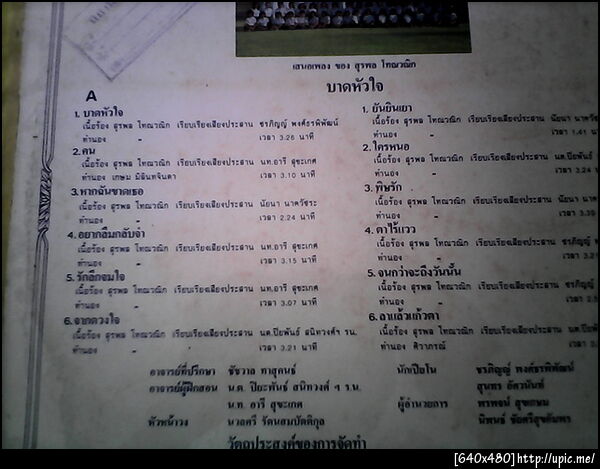 เสนอเพลง ของ สุรพล โทณวณิก
บาดหัวใจ
A
1. บาดหัวใจ
เนื้อร้อง สุรพล โทณวณิก เรียบเรียงเสียงประสาน ชรภิญญ์ พงศ์ธรพิพัฒน์
ทำนอง " เวลา 3.26 นาที
2. คน
เนื้อร้อง สุรพล โทณวณิก เรียบเรียงเสียงประสาน นท.อารี สุขะเกศ
ทำนอง เกษม มิลินทจินดา เวลา 3.10 นาที
3. หากฉันขาดเธอ
เนื้อร้อง สุรพล โทณวณิก เรียบเรียงเสียงประสาน นัยนา นาควัชระ
ทำนอง " เวลา 2.24 นาที
4. อยากลืมกลับจำ
เนื้อร้อง สุรพล โทณวณิก เรียบเรียงเสียงประสาน นท.อารี สุขะเกศ
ทำนอง " เวลา 3.15 นาที
5. รักลึกจมใจ
เนื้อร้อง สุรพล โทณวณิก เรียบเรียงเสียงประสาน นท.อารี สุขะเกศ
ทำนอง " เวลา 3.07 นาที
6. จากดวงใจ
เนื้อร้อง สุรพล โทณวณิก เรียบเรียงเสียงประสาน นต.ปิยพันธ์ สนิทวงศ์ฯ รน.
ทำนอง " เวลา 3.21 นาที
1. ยันยินเยา
เนื้อร้อง สุรพล โทณวณิก เรียบเรียงเสียงประสาน นัยนา
ทำนอง " เวลา 1.41
2. ใครหนอ
เนื้อร้อง สุรพล โทณวณิก เรียบเรียงเสียงประสาน นต.ปิยพันธ์
ทำนอง " เวลา 3.24
3. พิษรัก
เนื้อร้อง สุรพล โทณวณิก เรียบเรียงเสียงประสาน นัยนา
ทำนอง " เวลา
4. ตาไร้แวว
เนื้อร้อง สุรพล โทณวณิก เรียบเรียงเสียงประสาน ชรภิญญ์
ทำนอง " เวลา
5. จนกว่าจะถึงวันนั้น
เนื้อร้อง สุรพล โทณวณิก เรียบเรียงเสียงประสาน
ทำนอง " เวลา
6. ลาแล้วแก้วตา
เนื้อร้อง สุรพล โทณวณิก เรียบเรียงเสียงประสาน นต.ปิยพันธ์
ทำนอง ศิวาภรณ์ เวลา
อาจารย์ที่ปรึกษา ชัชวาล ทาสุคนธ์
อาจารย์ผู้ฝึกสอน น.ต. ปิยะพันธ์ สนิทวงศ์ ฯ ร.น.
น.ท. อารี สุขะเกศ
หัวหน้าวง นาลตรี รัตนสมบัตติกุล
นักเปียโน ชรภิญญ์ พงศ์ธรพิพัฒน์
สุนทร อัศวนันท์
ผู้อำนวยการ พรพจน์ สุขเกษม
นิพนธ์
วัตถุประสงค์ของการจัดทำ
[640x480]http://upic.me/